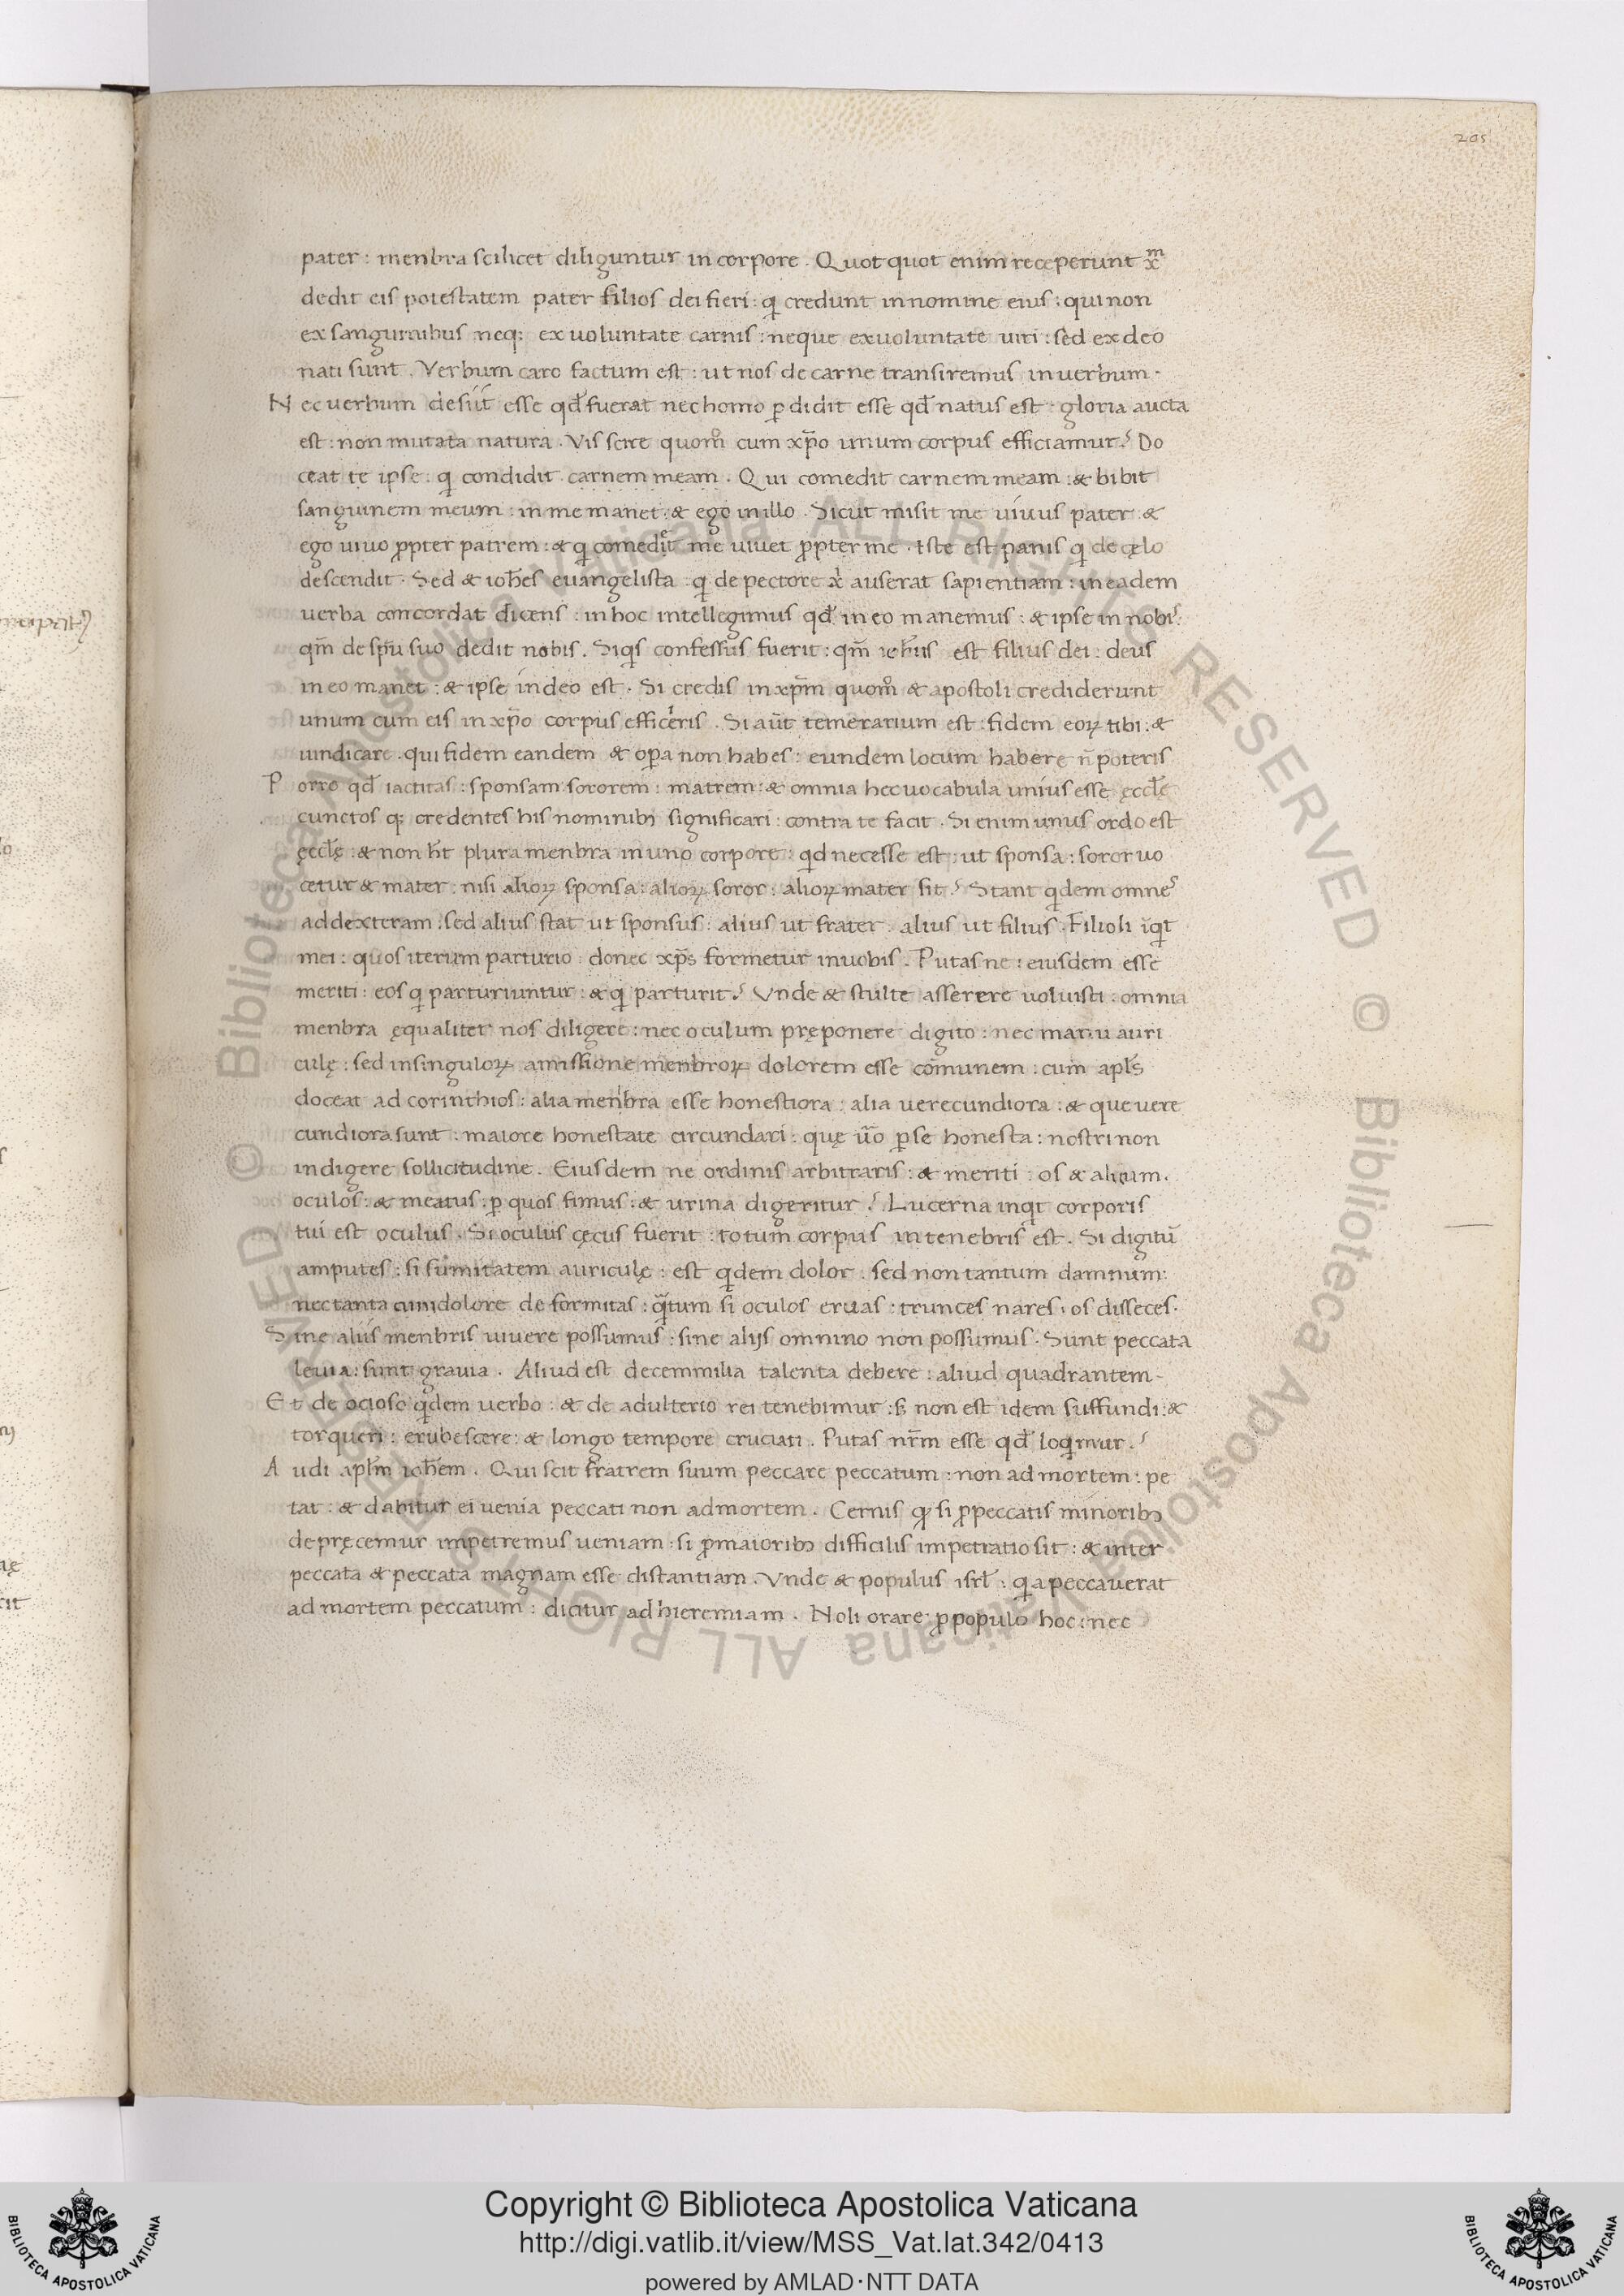 205
pater : menbra scilicet diliguntur in corpore . Quot quot enim receperunt xͫ
dedit eis potestatem pater filios dei fieri : q̇ credunt in nomine eius : qui non
ex sanguinibus neq; ex uoluntate carnis : neque ex uoluntate uiri : sed ex deo
nati sunt . Verbum caro factum est : ut nos de carne transiremus in uerbum .
Nec uerbum desiit esse qđ fuerat nec homo ꝑdidit esse qđ natus est . gloria aucta
est : non mutata natura . Vis scire quom̊ cum xp̄o unum corpus efficiamur ? Do
ceat te ipse : q̇ condidit carnem meam . Qui comedit carnem meam : & bibit
sanguinem meum : in me manet : & ego in illo . Sicut misit me uiuus pater : &
ego uiuo ꝓpter patrem : & q̇ comedit me uiuet ꝓpter me . Iste est panis q̇ de cęlo
descendit . Sed & ioh̄es euangelista : q̇ de pectore x̊ auserat sapientiam : in eadem
uerba concordat dicens : in hoc intellegimus qđ in eo manemus : & ipse in nobis :
qm̄ de sp̄u suo dedit nobis . Siq̇s confessus fuerit : qm̄ ieh̄us est filius dei : deus
in eo manet : & ipse in deo est . Si credis in xp̄m quom̊ & apostoli crediderunt
unum cum eis in xp̄o corpus efficeris . Si aūt temerarium est : fidem eoꝝ tibi : &
uindicare . qui fidem eandem & oꝑa non habes : eundem locum habere n̄ poteris
Porro qđ iactitas : sponsam sororem : matrem : & omnia hec uocabula unius esse ęccłę
cunctos q; credentes his nominibꝫ significari : contra te facit . Si enim unus ordo est
ęccłę : & non ħt plura menbra in uno corpore : qd necesse est : ut sponsa : soror uo
cetur & mater : nisi alioꝝ sponsa : alioꝝ soror : alioꝝ mater sit ? Stant q̇dem omnes
ad dexteram : sed alius stat ut sponsus : alius ut frater . alius ut filius . Filioli īq̇t
mei : quos iterum parturio : donec xp̄s formetur in uobis . Putas ne : eiusdem esse
meriti : eos q̇ parturiuntur : & q̇ parturit ? Vnde & stulte asserere uoluisti : omnia
menbra ęqualiter nos diligere : nec oculum pręponere digito : nec manu auri
culę : sed in singuloꝝ amissione menbroꝝ dolorem esse cōmunem : cum apłs
doceat ad corinthios : alia menbra esse honestiora : alia uerecundiora : & que uere
cundiora sunt : maiore honestate circundari : quę ūo ꝑ se honesta : nostri non
indigere sollicitudine . Eiusdem ne ordinis arbitraris : & meriti : os & aluum .
oculos : & meatus : ꝑ quos fimus : & urina digeritur ? Lucerna inq̇t corporis
tui est oculus . Si oculus cęcus fuerit : totum corpus in tenebris est . Si digitū
amputes : si sumitatem auriculę : est q̇dem dolor : sed non tantum damnum :
nec tanta cum dolore deformitas : q̄tum si oculos eruas : trunces nares : os disseces .
Sine aliis menbris uiuere possumus : sine alijs omnino non possumus . Sunt peccata
leuia : sunt grauia . Aliud est decemmilia talenta debere : aliud quadrantem .
Et de ocioso q̇dem uerbo : & de adulterio rei tenebimur : s; non est idem suffundi : &
torqueri : erubescere : & longo tempore cruciari . Putas nr̄m esse qđ loq̇mur . ?
Audi apłm ioh̄em . Qui scit fratrem suum peccare peccatum : non ad mortem : pe
tat : & dabitur ei uenia peccati non ad mortem . Cernis qꝫ si ꝓ peccatis minoribꝫ
depręcemur impetremus ueniam : si ꝓ maioribꝫ difficilis impetratio sit : & inter
peccata & peccata magnam esse distantiam . Vnde & populus isrł : q̇a peccauerat
ad mortem peccatum : dicitur ad hieremiam . Noli orare ꝓ populo hoc : nec
© Biblioteca Apostolica Vaticana ALL RIGHTS RESERVED © Biblioteca Apostolica Vaticana ALL RIGHTS RESERVED
Copyright © Biblioteca Apostolica Vaticana
http://digi.vatlib.it/view/MSS_Vat.lat.342/0413
powered by AMLAD·NTT DATA
BIBLIOTECA APOSTOLICA VATICANA
BIBLIOTECA APOSTOLICA VATICANA